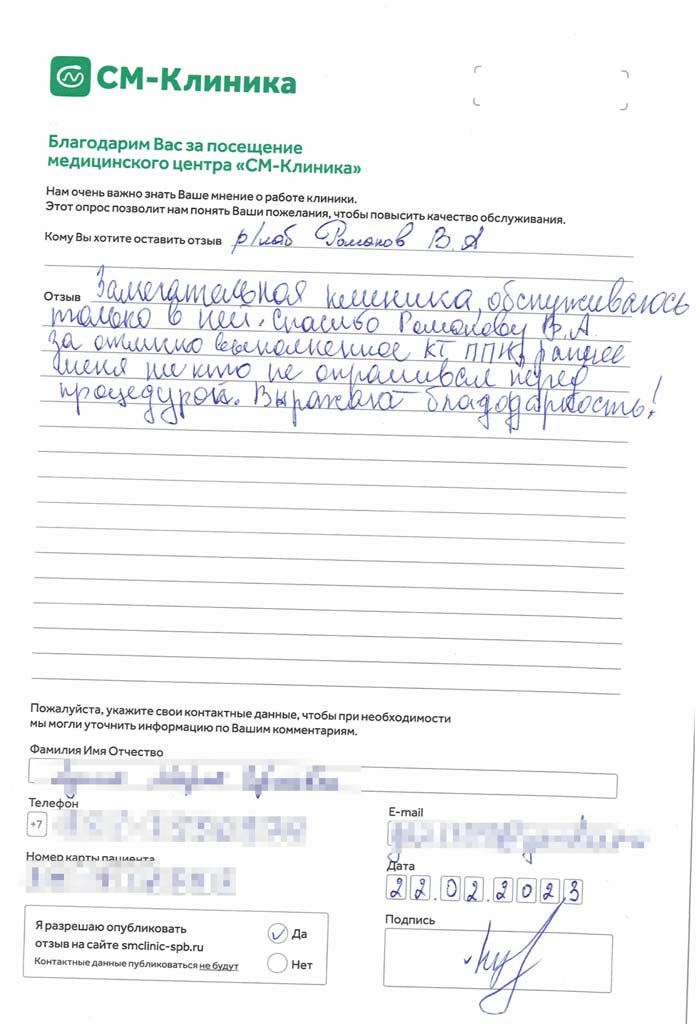 СМ-Клиника
Благодарим Вас за посещение
медицинского центра «СМ-Клиника»
Нам очень важно знать Ваше мнение о работе клиники.
Этот опрос позволит нам понять Ваши пожелания, чтобы повысить качество обслуживания.
Кому Вы хотите оставить отзыв р/лаб Романов В.А
Отзыв Замечательная клиника, обслуживаюсь
только в ней. Спасибо Романову В.А.
за отлично выполненное КТ ППН, ранее
меня ни кто не опрашивал перед
процедурой. Выражаю благодарность!
Пожалуйста, укажите свои контактные данные, чтобы при необходимости
мы могли уточнить информацию по Вашим комментариям.
Фамилия Имя Отчество
Телефон
+7
E-mail
Номер карты пациента
Дата
22.02.2023
Я разрешаю опубликовать
отзыв на сайте smclinic-spb.ru
Контактные данные публиковаться не будут
Да
Нет
Подпись